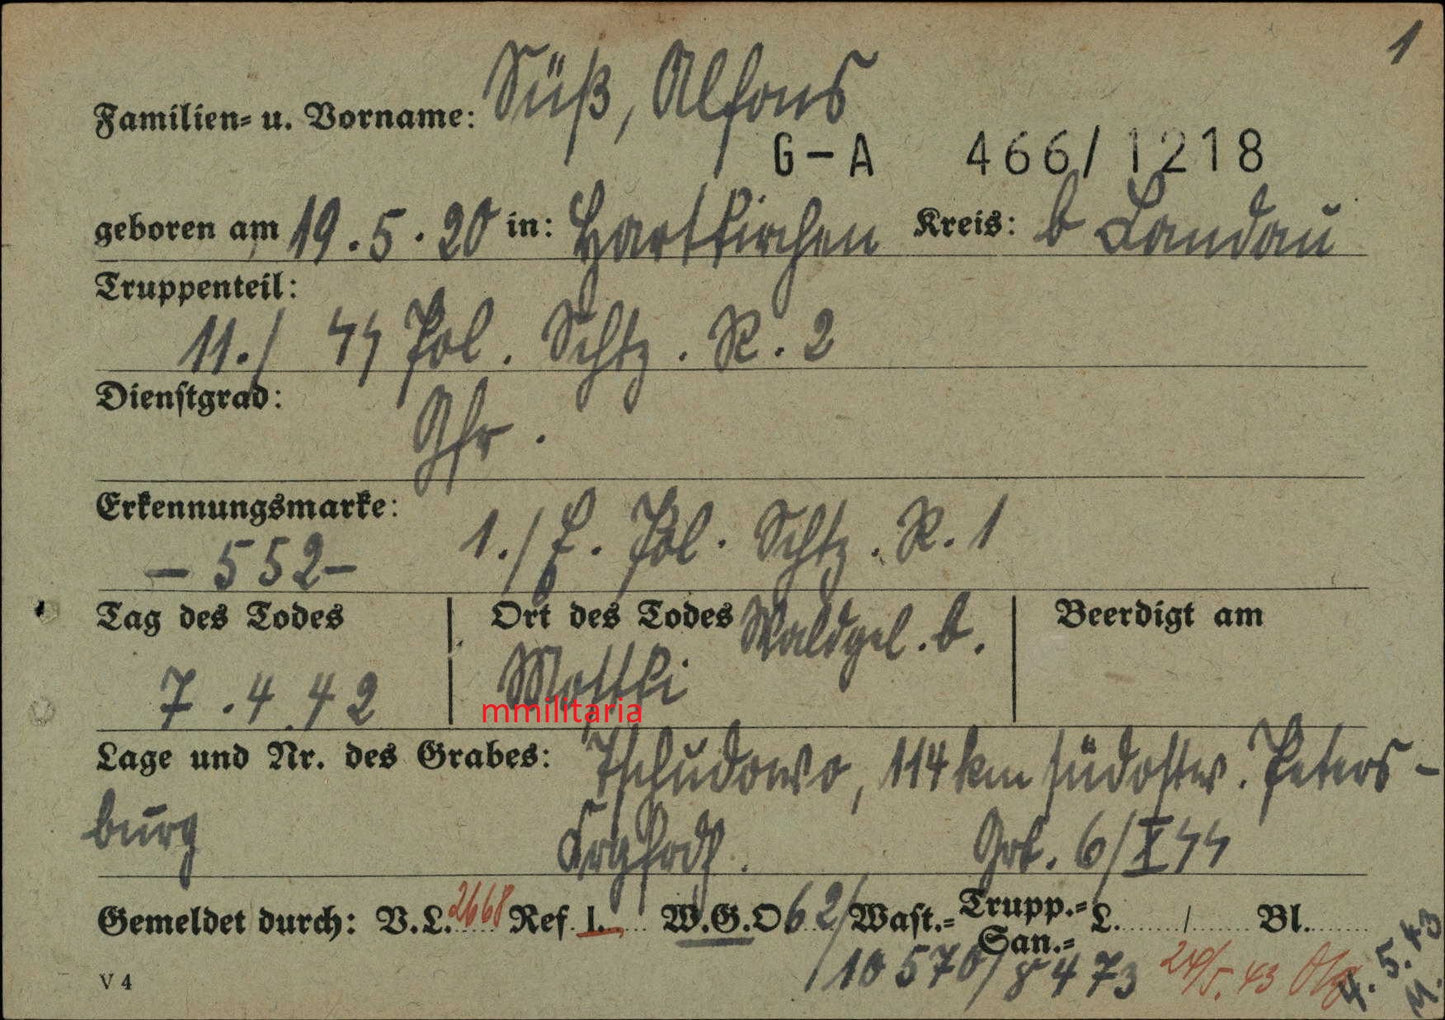 1
Familien- u. Vorname: Süß, Alfons
G-A 466/1218
geboren am 19.5.20 in: Hartkirchen Kreis: b Landau
Truppenteil:
11./ SS Pol. Schtz. R. 2
Dienstgrad:
Gfr.
Erkennungsmarke:
-552- 1./E. Pol. Schtz. R. 1
Tag des Todes Ort des Todes Waldgel. b. Beerdigt am
7.4.42 Mostki
mmilitaria
Lage und Nr. des Grabes: Tschudowo, 114 km südostw. Peters-
burg Krgfrdf. Grb. 6/X SS
Gemeldet durch: V.L. 2668 Ref. 1. W.G.O 62/ Wast.= Trupp.= L. / Bl.
San.=
V 4 /10570/ 8473 24/5.43 4.5.43